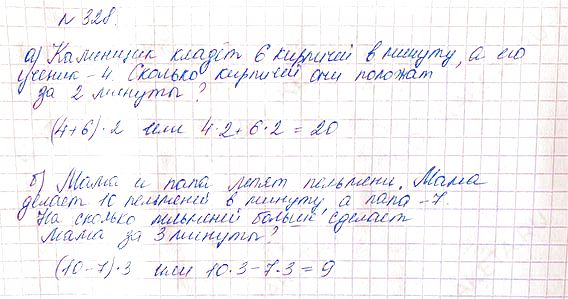 N 328.
а) Каменщик кладёт 6 кирпичей в минуту, а его
ученик - 4. Сколько кирпичей они положат
за 2 минуты?
(4+6)·2 или 4·2+6·2=20
б) Мама и папа лепят пельмени. Мама
делает 10 пельменей в минуту, а папа - 7.
На сколько пельменей больше сделает
мама за 3 минуты?
(10-7)·3 или 10·3-7·3=9